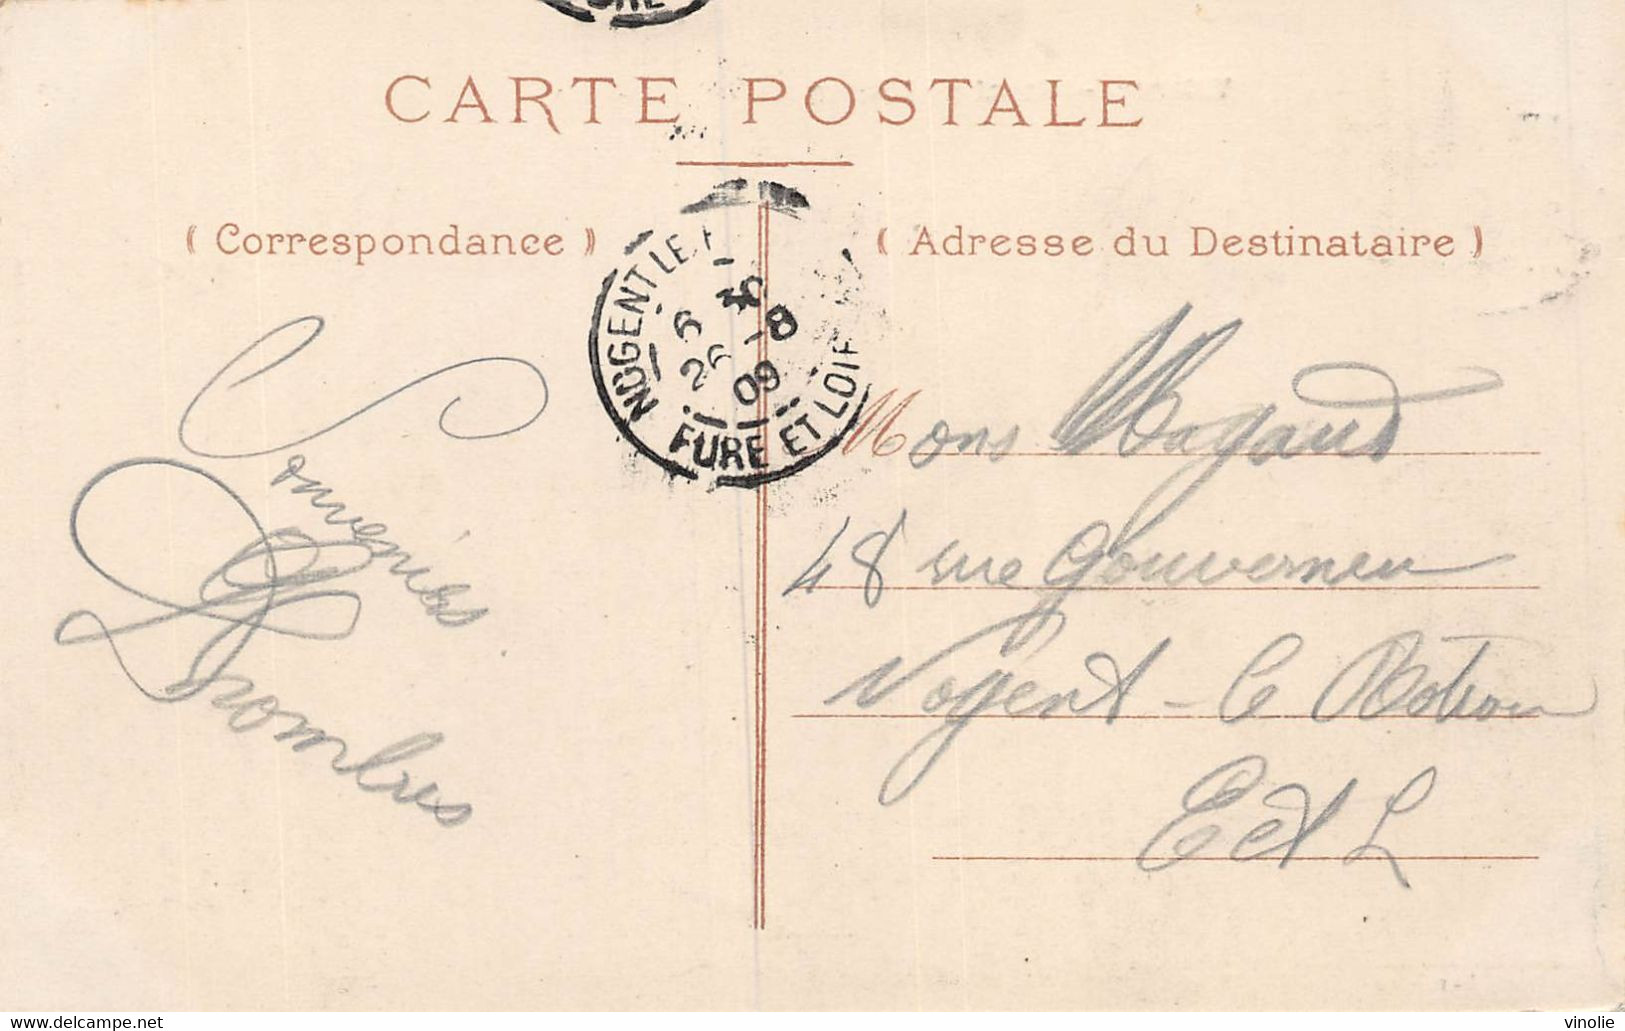 CARTE POSTALE
( Correspondance )
( Adresse du Destinataire )
NOGENT LE
6 30
26 -8
09
EURE ET LOIR
Souveniés
Mons
48 rue Gouverneur
Nogent - le Rotrou
E et L
www.delcampe.net
vinolie